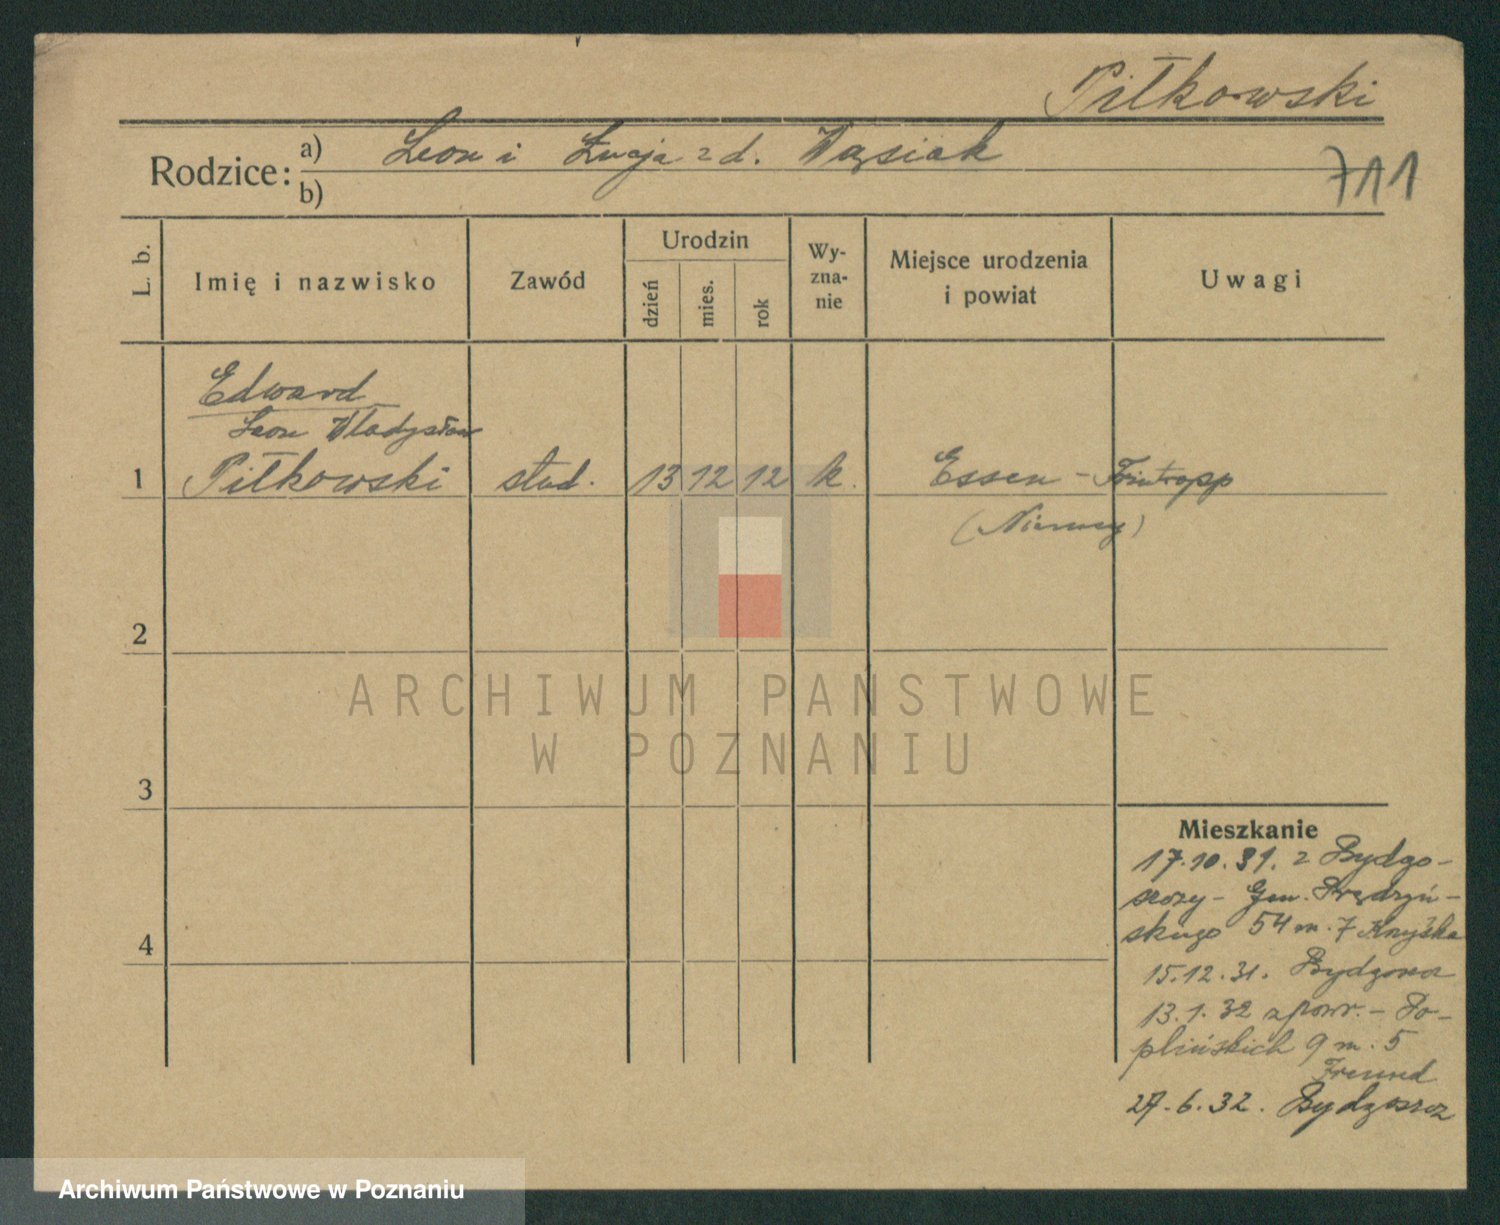 Piłkowski
Rodzice: a) Leon i Łucja z d. Wąsiak
b)
711
L. b.
Imię i nazwisko
Zawód
Urodzin
dzień
mies.
rok
Wy-
zna-
nie
Miejsce urodzenia
i powiat
Uwagi
Edward
Leon Władysław
1 Piłkowski stud. 13 12 12 k. Essen - Frintropp
(Niemcy)
2
3
4
ARCHIWUM PAŃSTWOWE
W POZNANIU
Mieszkanie
17.10.31. z Bydgo-
szczy - Gen. Prądzyń-
skiego 54 m. 7
15.12.31. Bydgoszcz
13.1.32 z powr. - Po-
plińskich 9 m. 5
Freund
27.6.32. Bydgoszcz
Archiwum Państwowe w Poznaniu